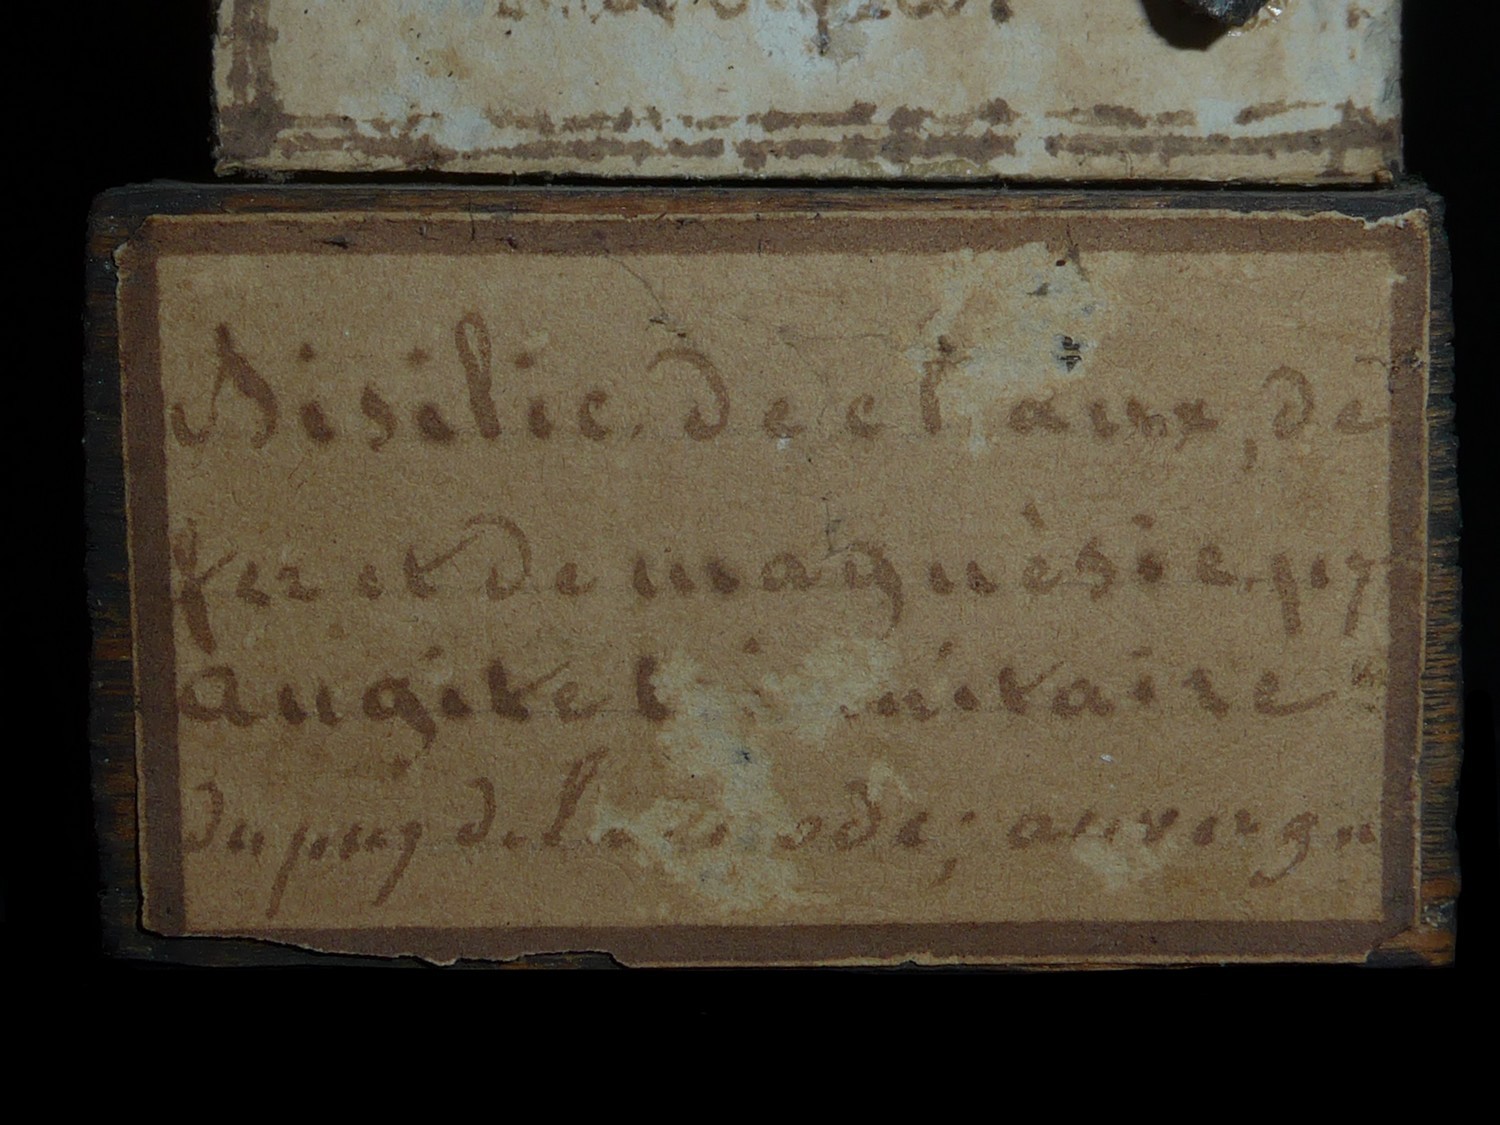 Bisilic. de chaux, de
fer et de magnèsie. py
augite
du puy de la rode; auvergn